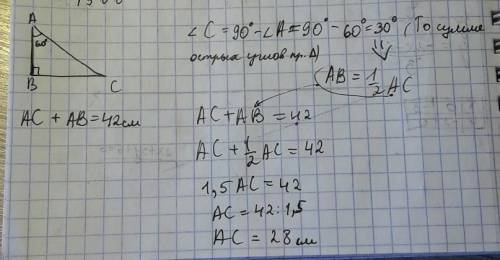 A
60°
B
C
AC + AB = 42 см
∠C = 90° - ∠A = 90° - 60° = 30° (По сумме
острых углов пр. Δ)
AB = 1/2 AC
AC + AB = 42
AC + 1/2 AC = 42
1,5 AC = 42
AC = 42 : 1,5
AC = 28 см